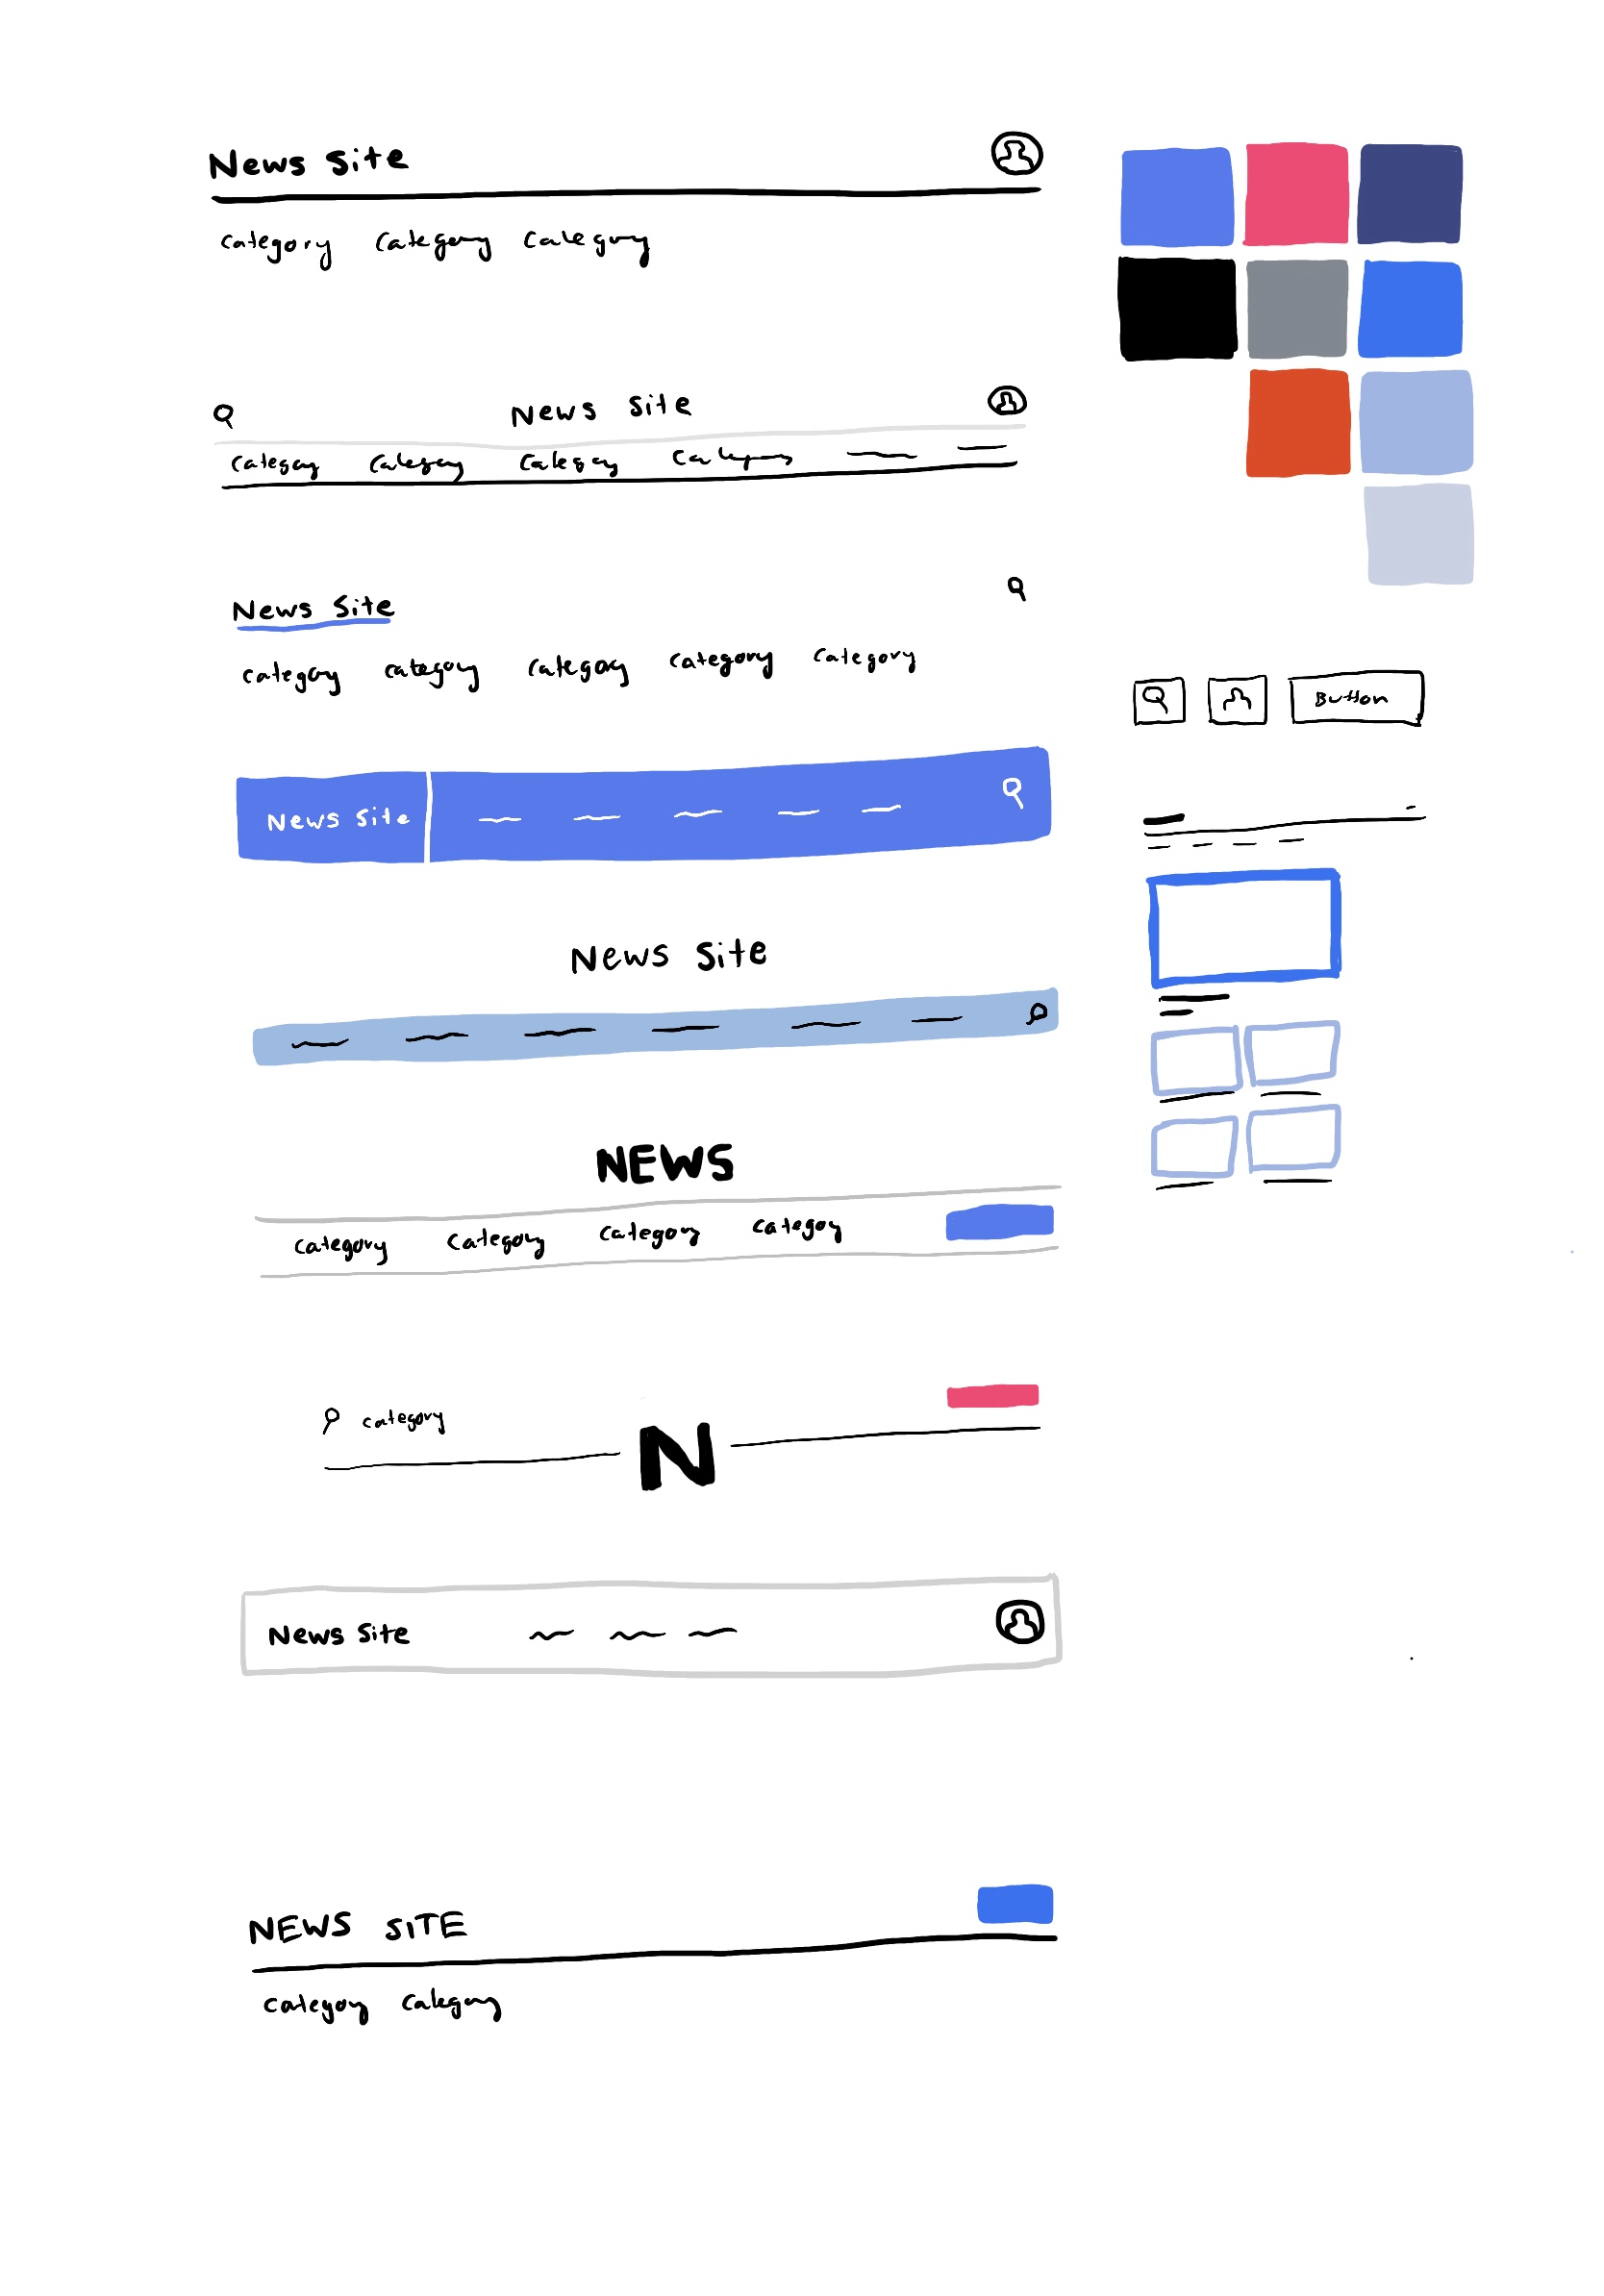 News Site
Category Category Category
News Site
Category Category Category Category
News Site
category category category category category
News Site
News Site
NEWS
Category Category Category Category
category
N
News Site
NEWS SITE
Category Category
Button